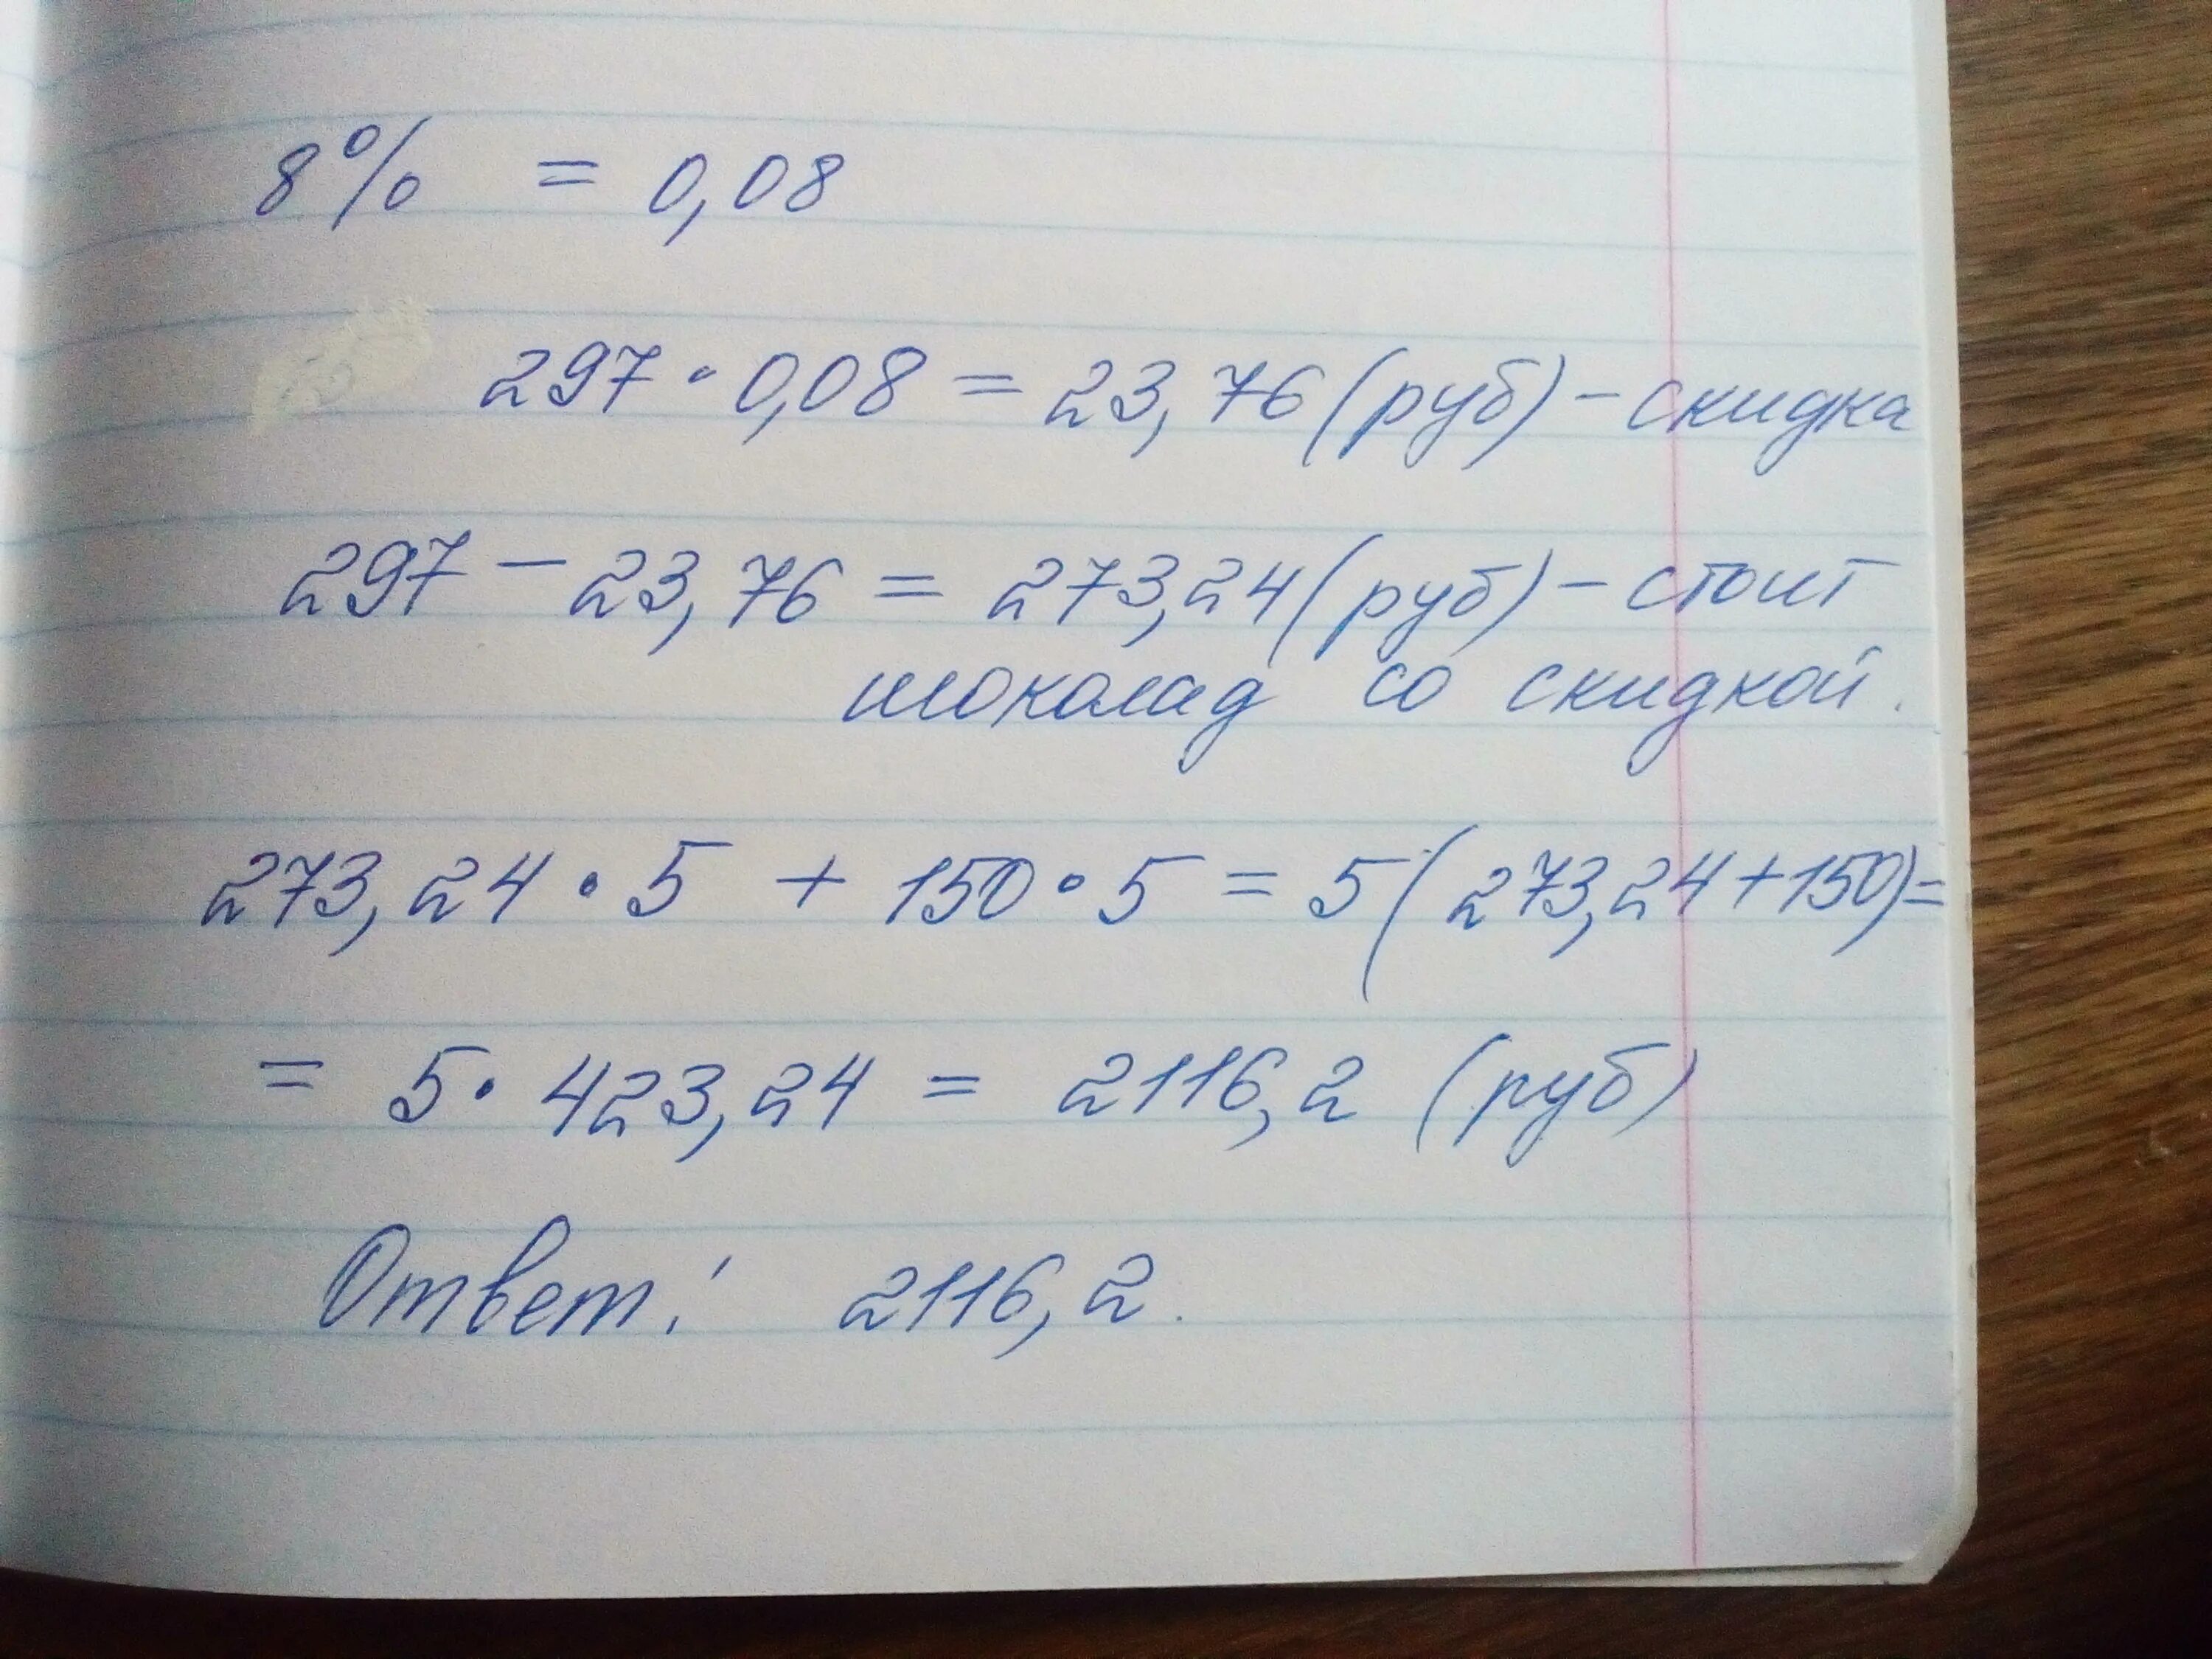 8% = 0,08
297 · 0,08 = 23,76 (руб) - скидка
297 - 23,76 = 273,24 (руб) - стоит
шоколад со скидкой.
273,24 · 5 + 150 · 5 = 5 (273,24 + 150) =
= 5 · 423,24 = 2116,2 (руб)
Ответ: 2116,2.